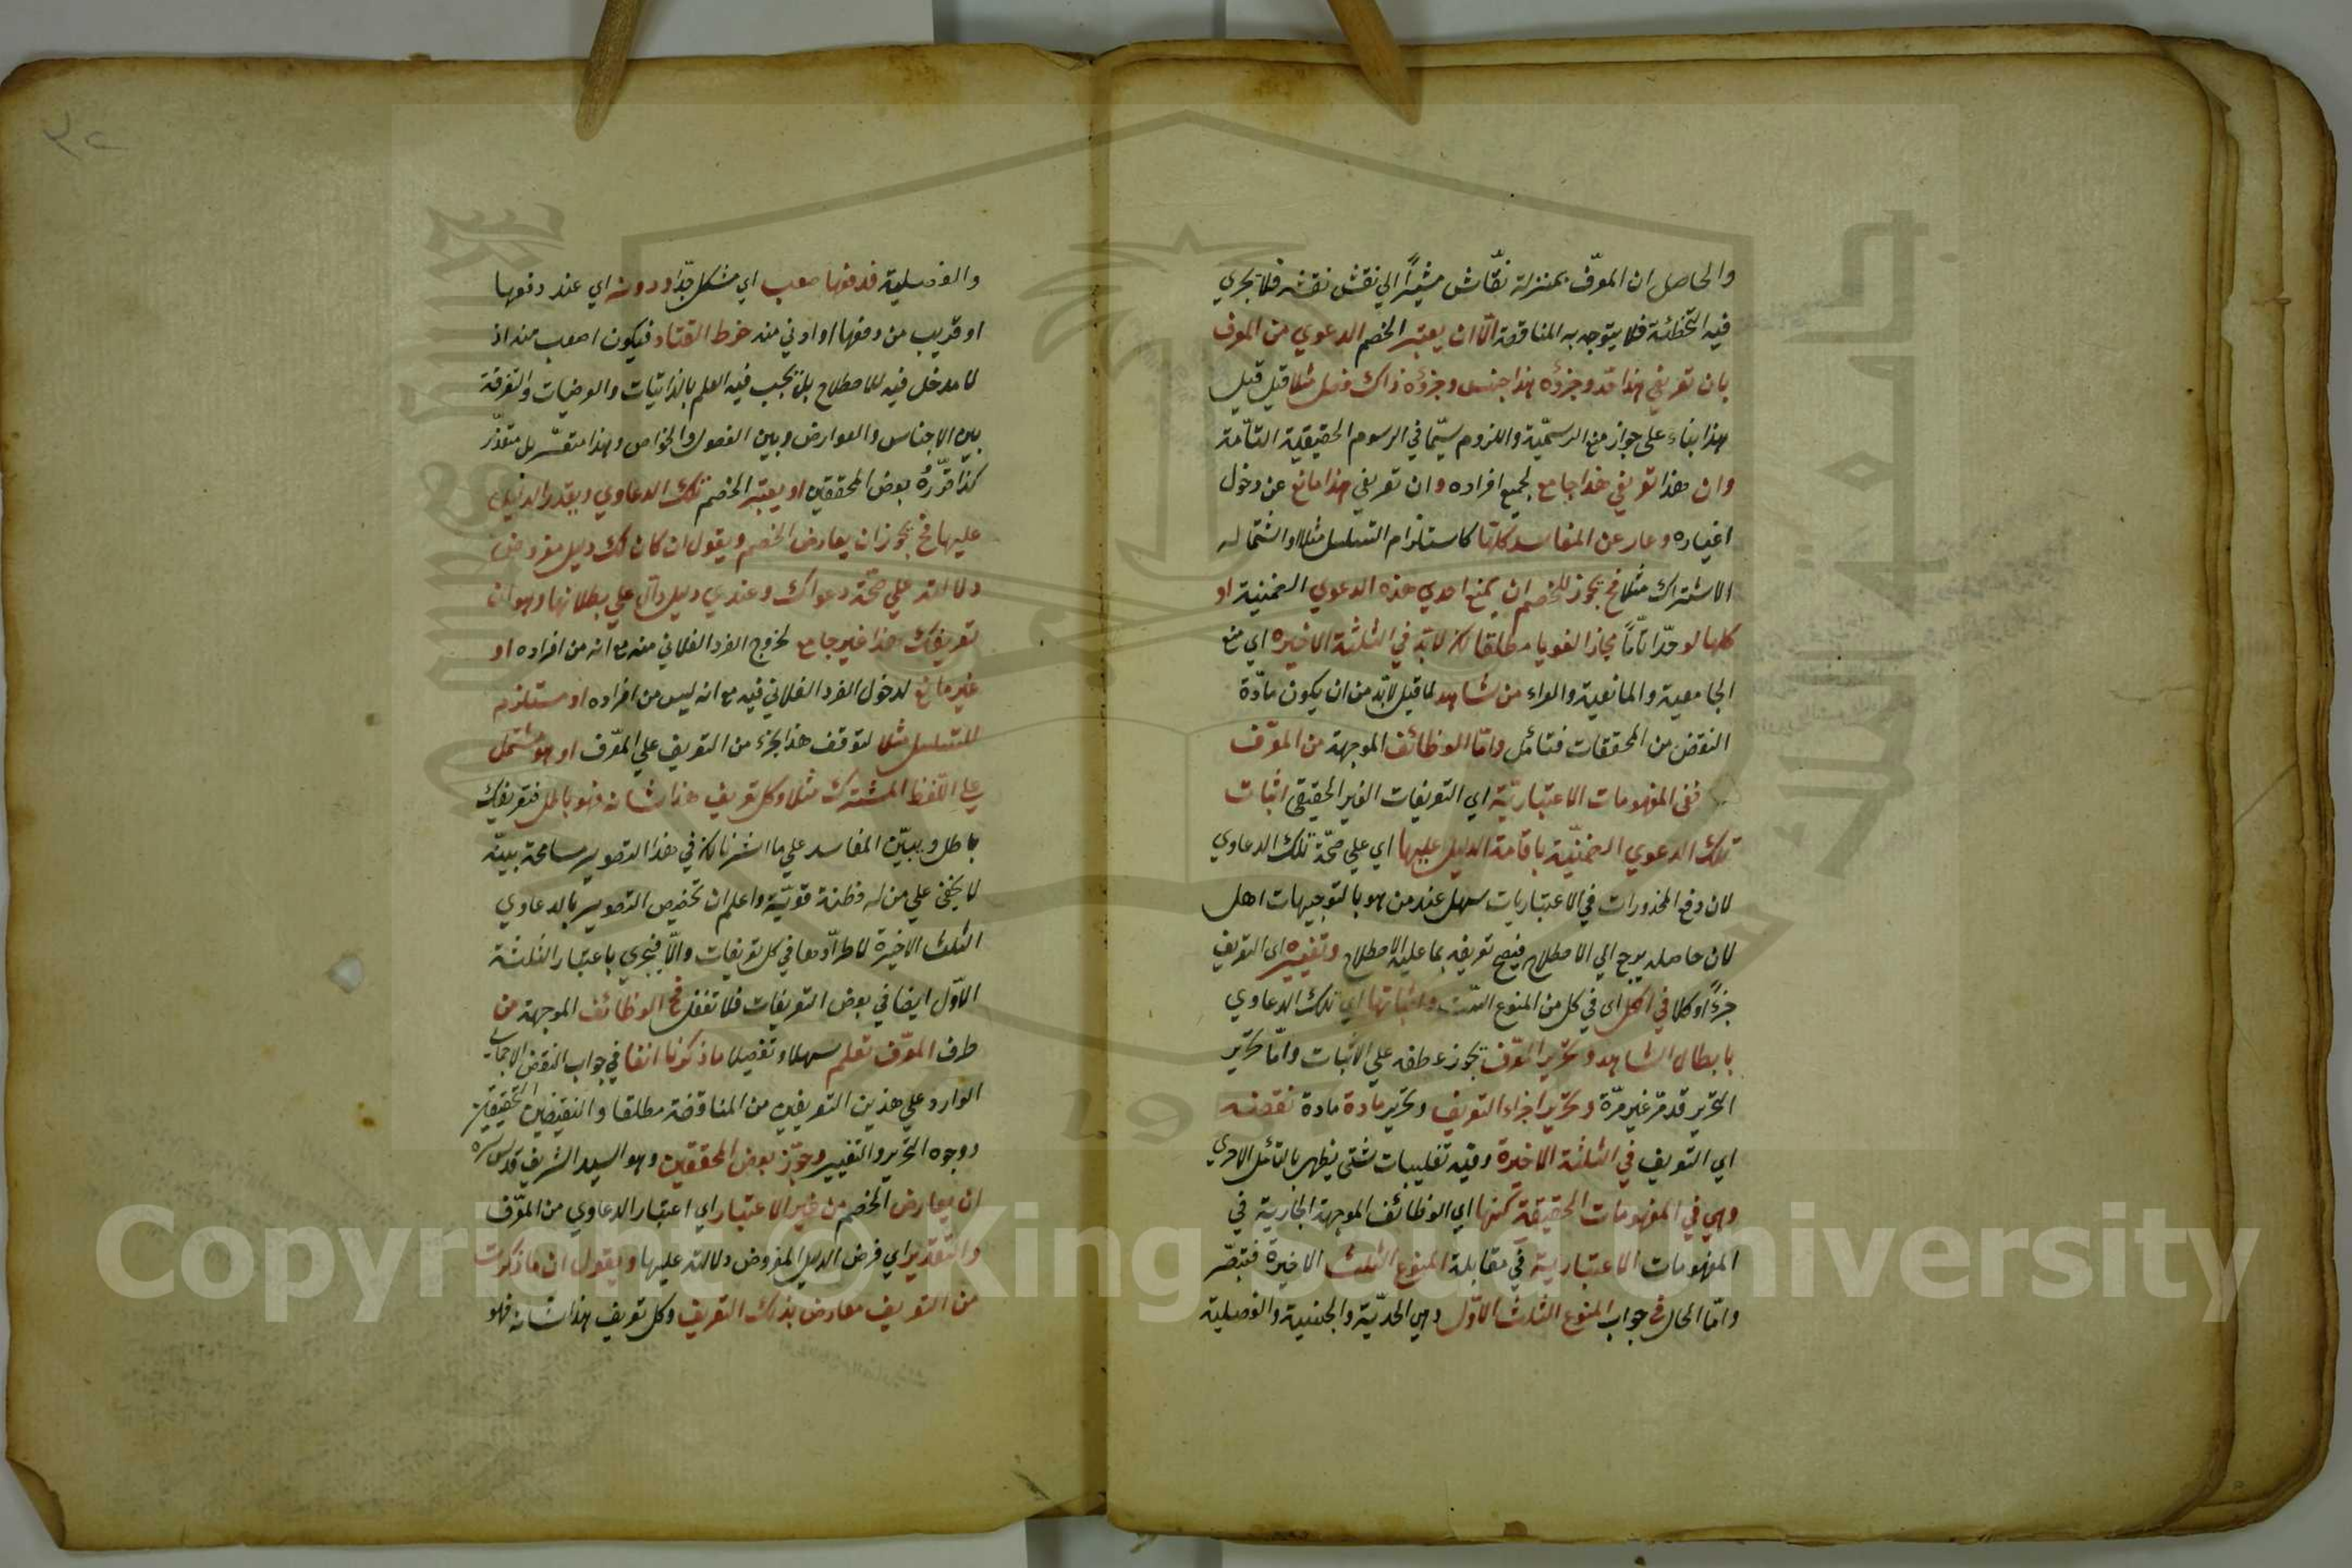 والحاصل ان المعرّف بمنزلة نقّاش مشيرًا الي نقش نقشه فلا تجري
فيه التخطئة فلا يتوجه به المناقضة الّا ان يعتبر الخصم الدعوي من المعرف
بان تعريفي هذا حد وجزؤه هذا جنس وجزؤه ذاك فصل مثلا قيل قيل
هذا بناء على جواز منع الرسميّة واللزوم سيّما في الرسوم الحقيقية التامّة
وان هذا تعريفي هذا جامع لجميع افراده وان تعريفي هذا مانع عن دخول
اغياره وعار عن المفاسد كلها كاستلزام التسلسل مثلا واشتماله
الاشتراك مثلا فح يجوز للخصم ان يمنع احدي هذه الدعوي الضمنية او
كلها لو حدّا تامّا مجازا لغويا مطلقا لكن لابدّ في الثلثة الاخيرة اي منع
الجامعية والمانعية والعراء من شاهد لما قيل لابّد من ان يكون مادّة
النقض من المحققات فتأمل وامّا الوظائف الموجهة من المعرّف
ففي المفهومات الاعتباريّة اي التعريفات الغير الحقيقي اثبات
تلك الدعوي الضمنيّة باقامة الدليل عليها اي علي صحّة تلك الدعاوي
لان دفع المحذورات في الاعتباريات سهل عند من هو بالتوجيهات اهل
لان حاصله يرجع الي الاصطلاح فيصح تعريفه بما عليه الاصطلاح وتغييره اي التعريف
جزءًا او كلا في الكل اي في كل من المنوع الستّ واثباتها اي تلك الدعاوي
بابطال الشاهد وتحرير المعرّف يجوز عطفه علي الاثبات وامّا تحرير
التحرير قد مرّ غير مرّة وتحرير اجزاء التعريف وتحرير مادة مادة نقضه
اي التعريف في الثلثة الاخيرة وفيه تغليبات شتى يظهر بالتأمل الاحري
وهي في المفهومات الحقيقة كمنها اي الوظائف الموجهة الجارية في
المفهومات الاعتبارية في مقابلة المنوع الثلث الاخيرة فتبصّر
وامّا الحال في جواب المنوع الثلث الاوّل وهي الحدّية والجنسية والفصيلية
والفصيلية فدفعها صعب اي مشكل جدّا ودونه اي عند دفعها
او قريب من دفعها او ادني منه خرط القتاد فيكون اصعب منه اذ
لا مدخل فيه للاصطلاح بل يجب فيه العلم بالذاتيات والعرضيات والتفرقة
بين الاجناس والعوارض وبين الفصول والخواص وهذا متعسّر بل متعذّر
كذا قرّره بعض المحققين او يعتبر الخصم تلك الدعاوي ويقدر الدليل
عليها فح يجوز ان يعارض الخصم ويقول ان كان لك دليل مفروض
دلالته علي صحّة دعواك وعندي دليل دالّ علي بطلانها وهو ان
تعريفك هذا غير جامع لخروج الفرد الفلاني منه مع انه من افراده او
غير مانع لدخول الفرد الفلاني فيه مع انه ليس من افراده او مستلزم
للتسلسل مثلا لتوقف هذا الجزء من التعريف علي المعّرف او هو مشتمل
علي اللّفظ المشترك مثلا وكل تعريف هذا شانه فهو باطل فتعريفك
باطل ويبيّن المفاسد علي ما اشرنا لكن في هذا التصوير مسامحة بيّنة
لا يخفى علي من له فطنة قويّة واعلم ان تخصيص التصوير بالدعاوي
الثلث الاخيرة لاطرادها في كل تعريفات والّا فيجري باعتبار الثلثة
الاوّل ايضا في بعض التعريفات فلا تغفل فح الوظائف الموجهة من
طرف المعرّف تعلم سهلا وتفصيلا ما ذكرنا انفا في جواب النقض الاجمالي
الوارد علي هذين التعريفين من المناقضة مطلقا والنقيضين الحقيقين
ووجوه التحرير والتغيير وجوّز بعض المحققين وهو السيد الشريف قدس سره
ان يعارض الخصم من غير الاعتبار اي اعتبار الدعاوي من المعّرف
والتقدير اي فرض الدليل المفروض دلالته عليها ويقول ان ما ذكرت
من التعريف معارض بذلك التعريف وكل تعريف هذا شانه فهو
Copyright © King Saud University